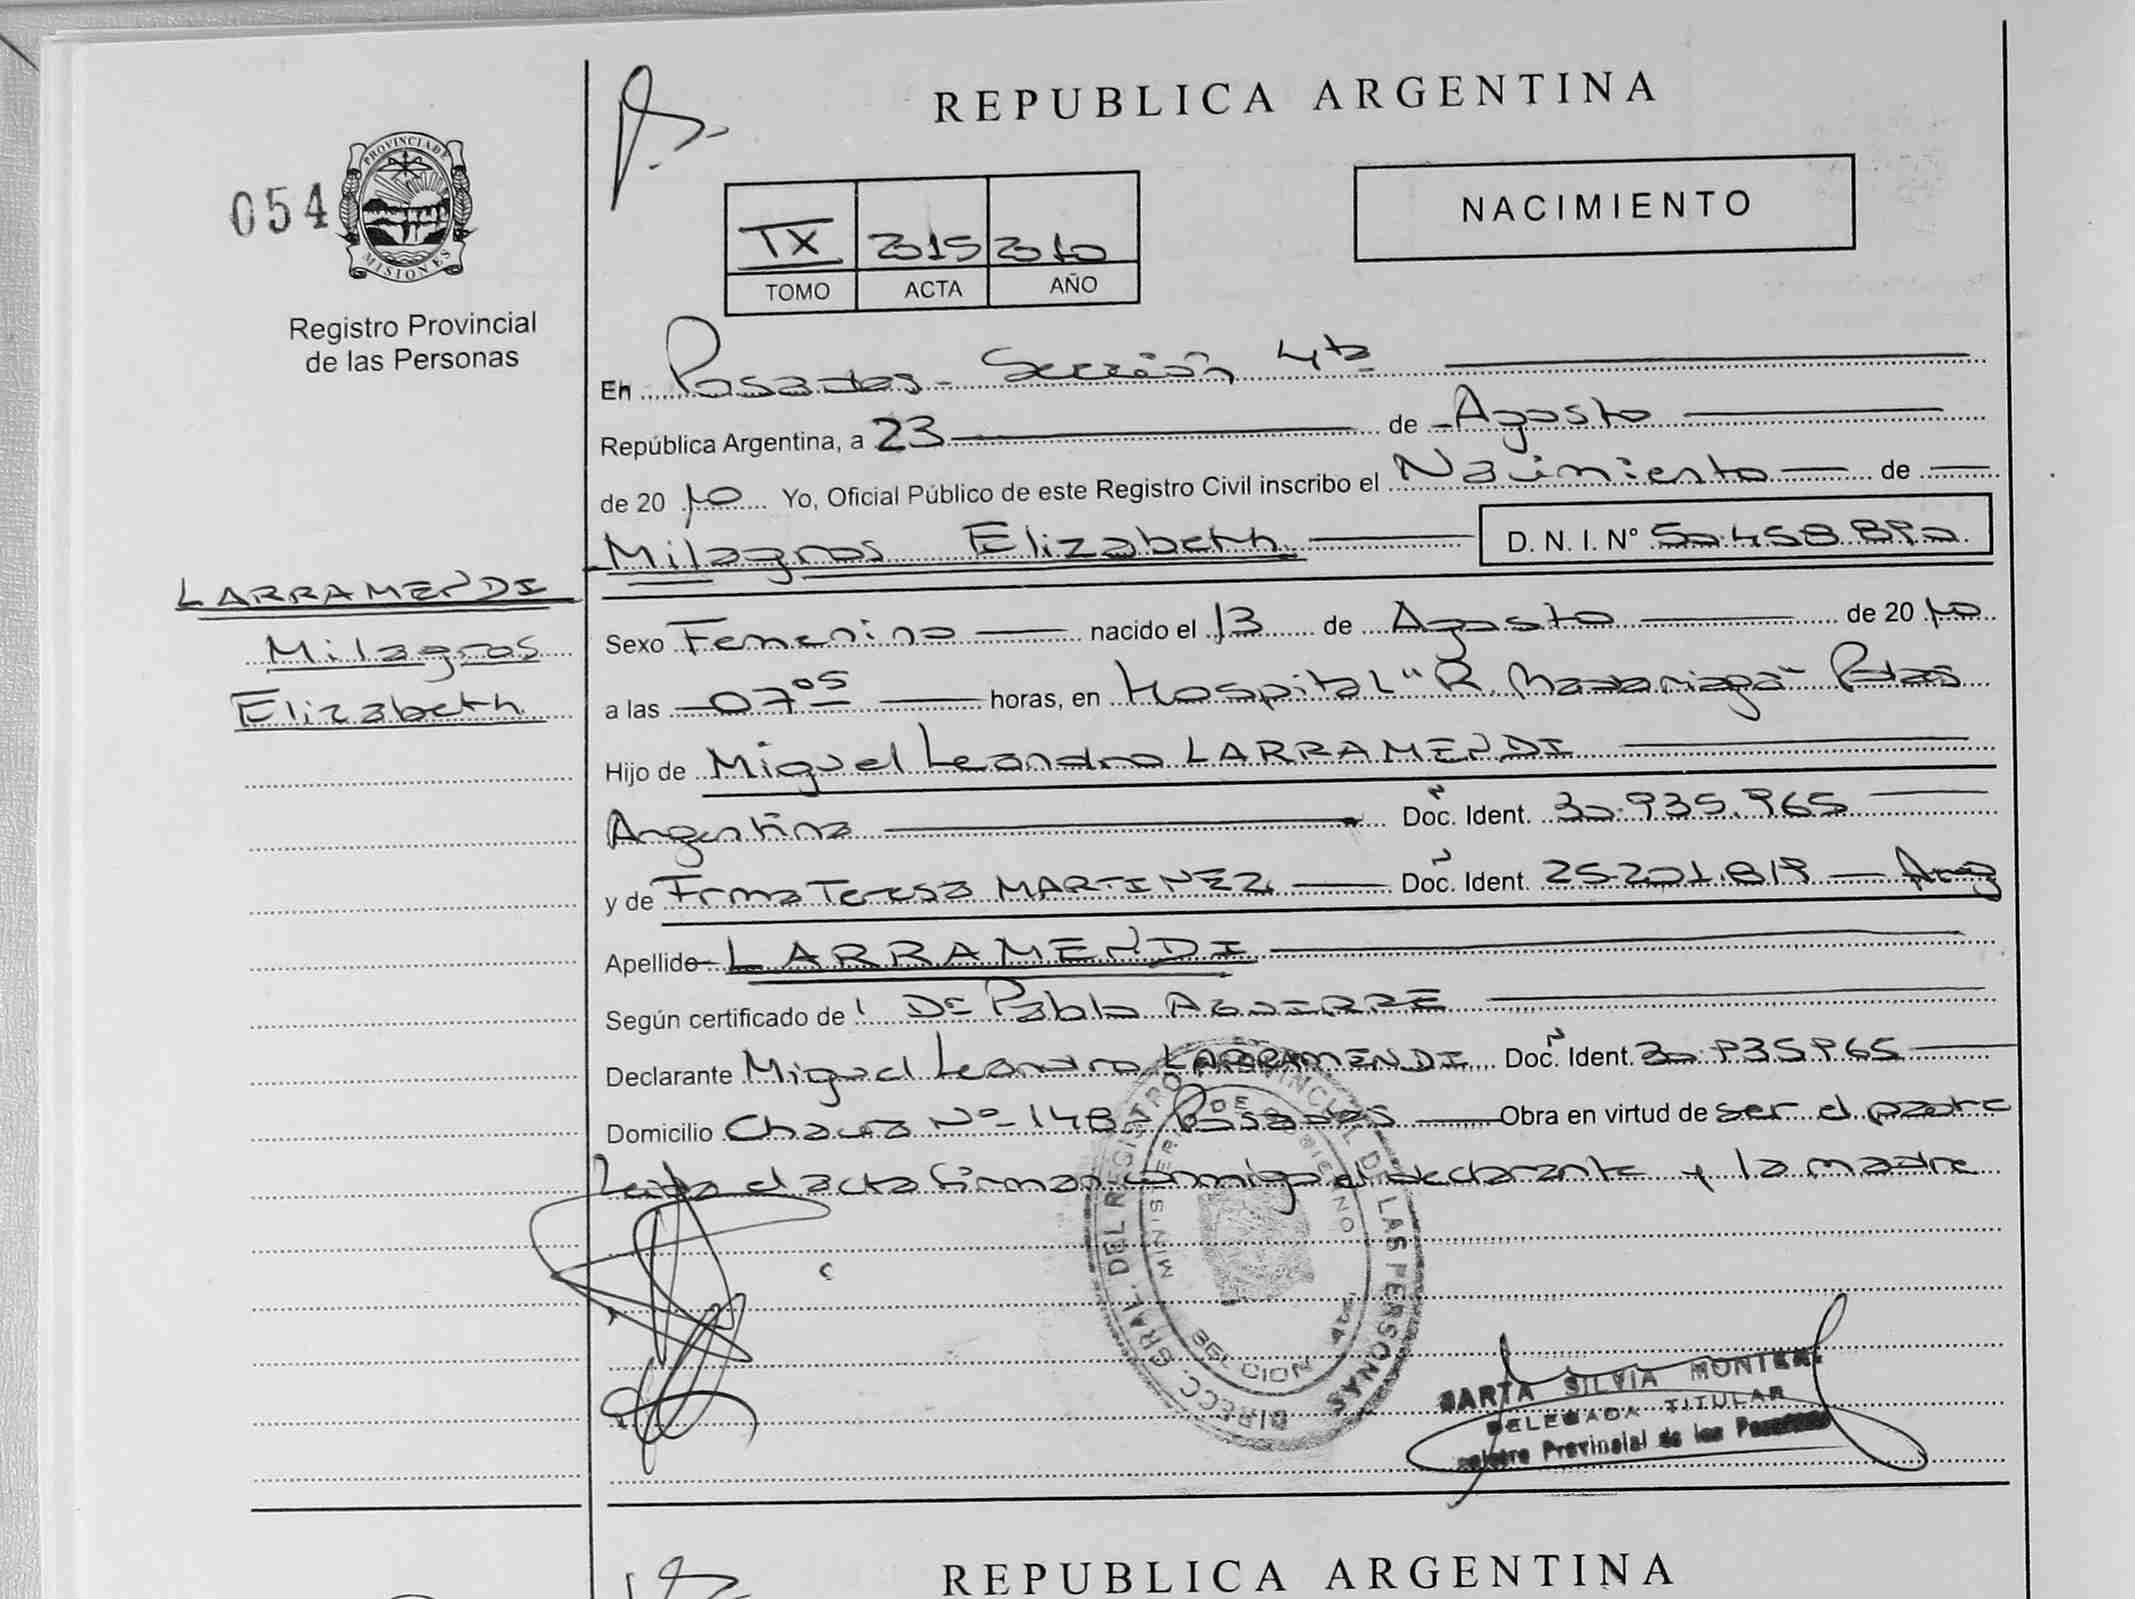 REPUBLICA ARGENTINA
054
PROVINCIA DE
MISIONES
Registro Provincial
de las Personas
NACIMIENTO
IX 2015 2010
TOMO ACTA AÑO
En Posadas - Sección 4ta
República Argentina, a 23 de Agosto
de 2010 Yo, Oficial Público de este Registro Civil inscribo el Nacimiento de
Milagros Elizabeth D. N. I. Nº 50.458.892
LARRAMENDI
Milagros
Elizabeth
Sexo Femenino nacido el 13 de Agosto de 2010
a las 07 05 horas, en Hospital "R. Madariaga" Pdas
Hijo de Miguel Leandro LARRAMENDI
Argentina Doc. Ident. 30.935.965
y de Irma Teresa MARTINEZ Doc. Ident. 25.201.819 Arg
Apellido LARRAMENDI
Según certificado de Dr Pablo AGUIRRE
Declarante Miguel Leandro LARRAMENDI Doc. Ident. 30.935965
Domicilio Chacra Nº 148 - Posadas Obra en virtud de ser el padre
Leída el acta firman conmigo el declarante y la madre
DIRECC. GRAL. DEL REGISTRO PROVINCIAL DE LAS PERSONAS
MARTA SILVIA
DELEGADA TITULAR
Registro Provincial de las Personas
REPUBLICA ARGENTINA